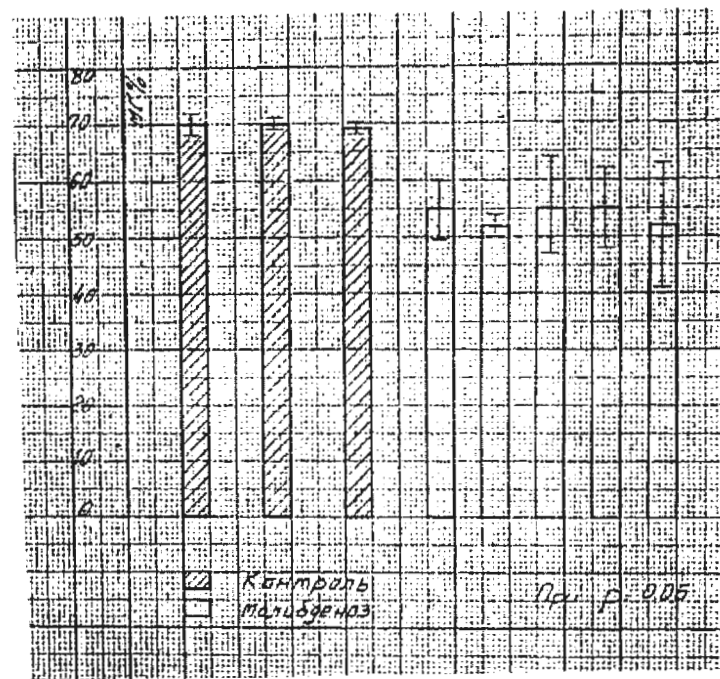 80
мг%
70
60
50
40
30
20
10
0
Контроль
Молибденоз
При p 0.05